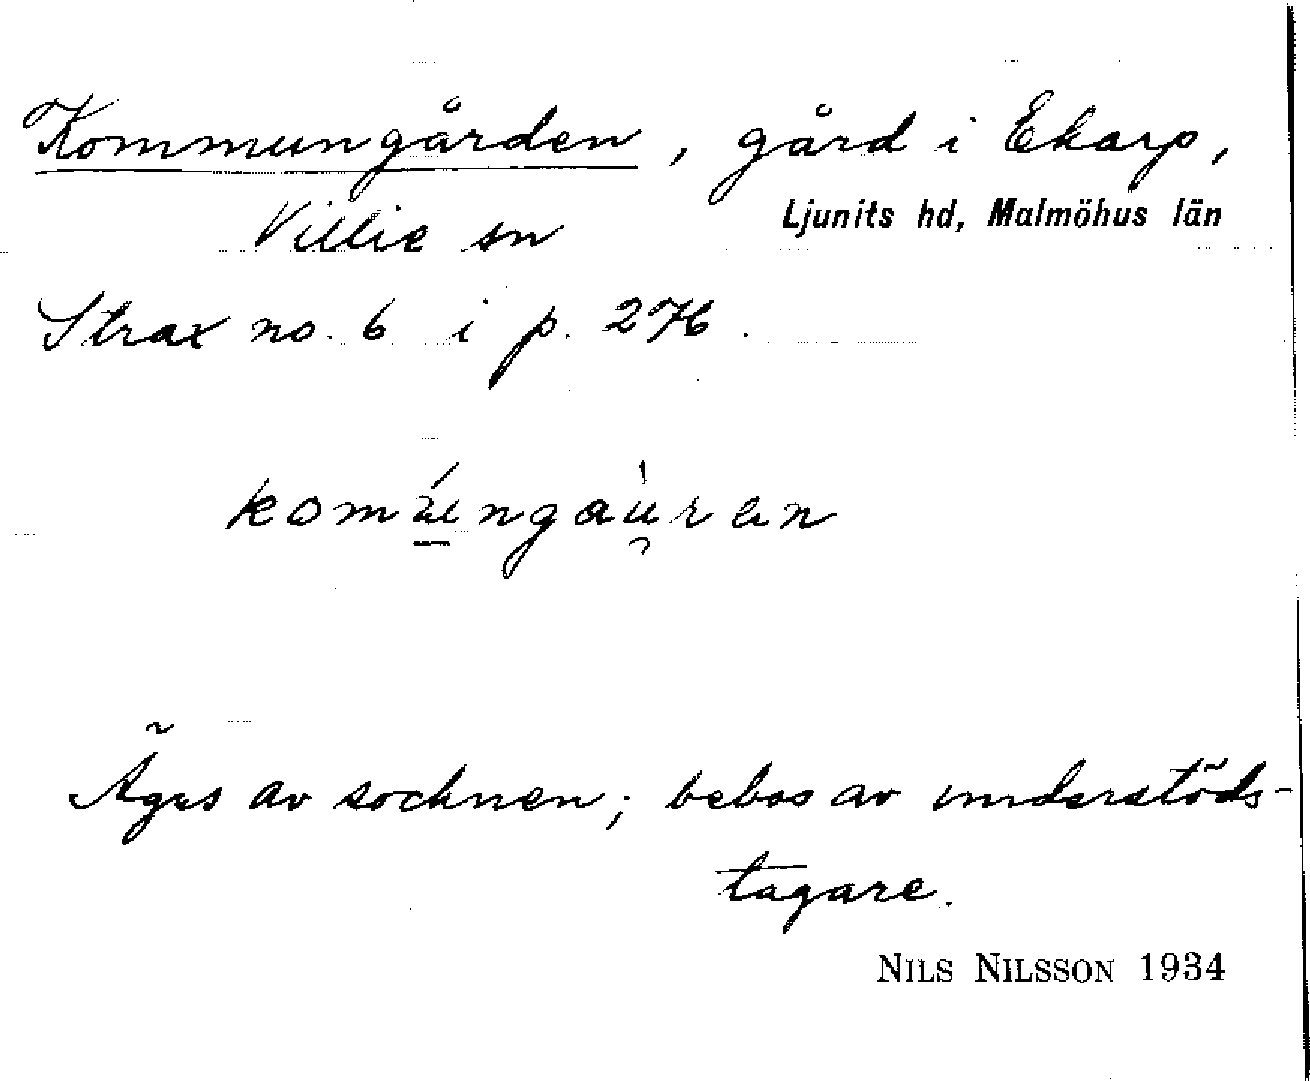 Kommungården, gård i Ekarp,
Villie sn Ljunits hd, Malmöhus län
Strax no. 6 i p. 276.
Äges av socknen; bebos av understöds-
tagare.
NILS NILSSON 1934